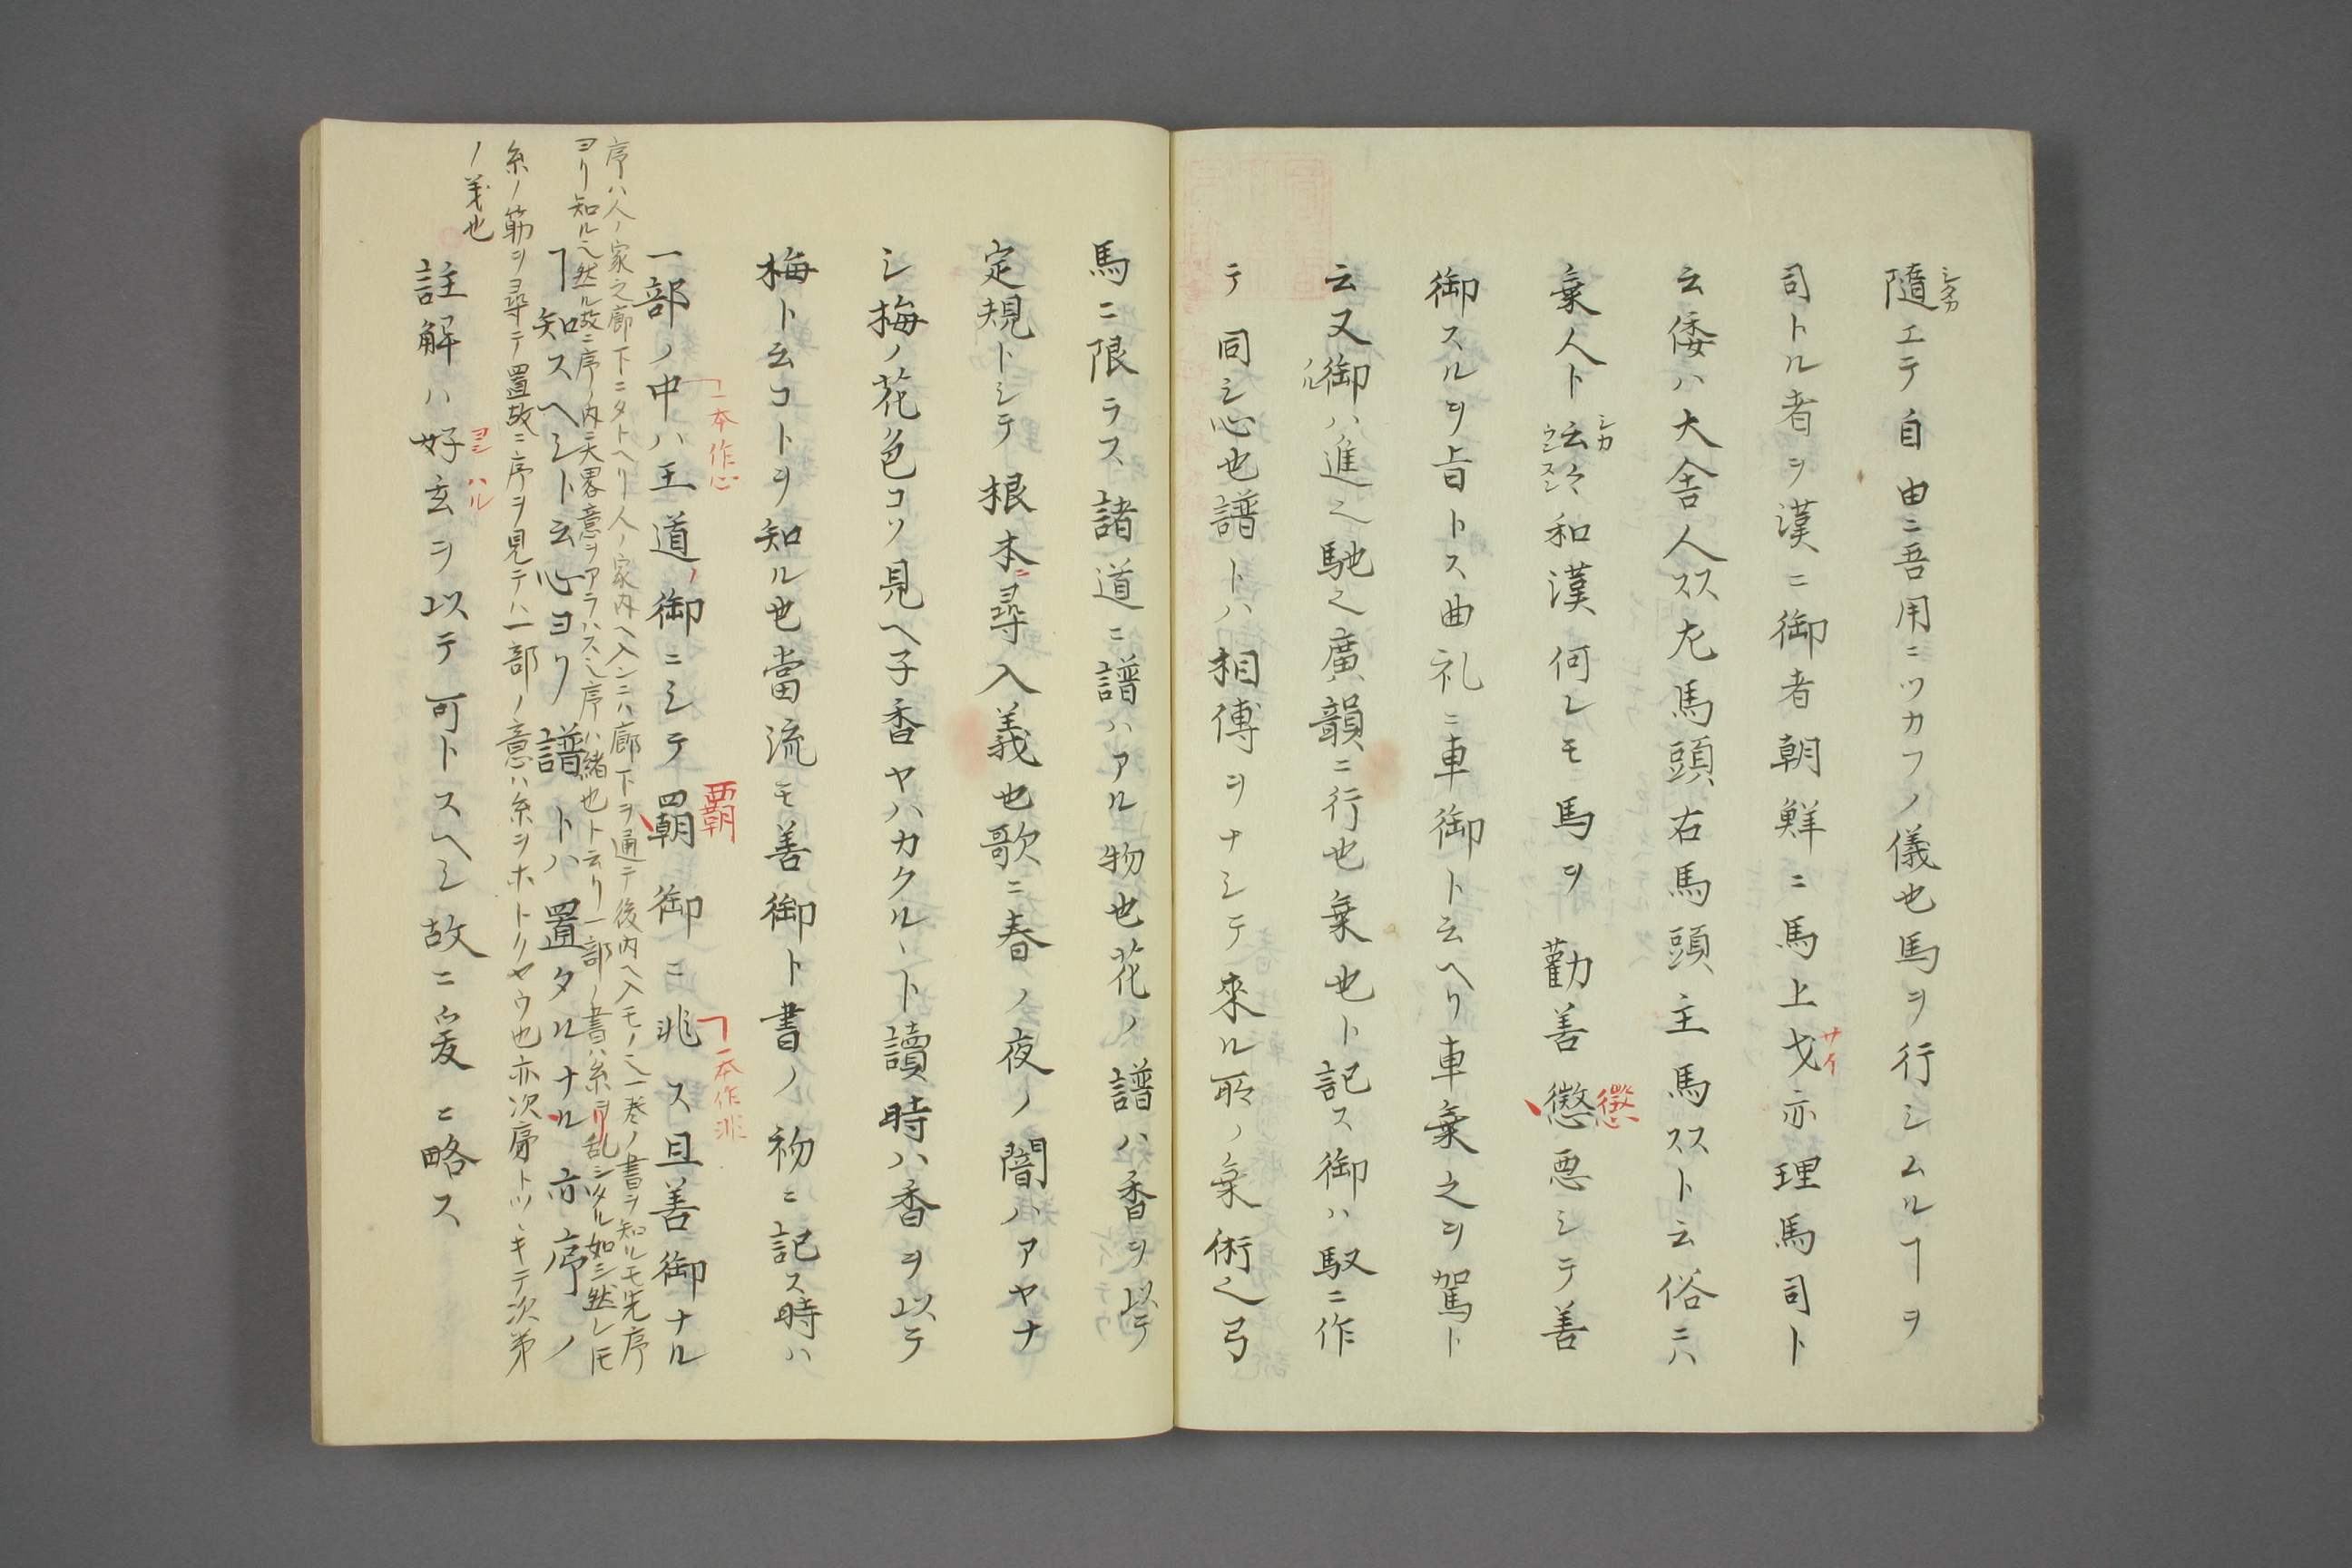 隨エテ自由ニ吾用ニツカフノ儀也馬ヲ行シムルヿヲ
シタカ
司トル者ヲ漢ニ御者朝鮮ニ馬上才亦理馬司ト
サイ
云倭ハ大舎人寮左馬頭右馬頭主馬寮ト云俗ニハ
乗人ト云々和漢何レモ馬ヲ勸善懲惡シテ善
シカ
ウンスン
懲
御スルヲ旨トス曲礼ニ車御ト云ヘリ車乗之ヲ駕ト
云又御ハ進之馳之廣韻ニ行也乗也ト記ス御ハ馭ニ作
ル
テ同シ心也譜トハ相傳ヲナシテ來ル所ノ乗術之弓
馬ニ限ラス諸道ニ譜ハアル物也花ノ譜ハ香ヲ以テ
定規トシテ根本ニ尋入義也歌ニ春ノ夜ノ闇ハアヤナ
シ梅ノ花色コソ見ヘ子香ヤハカクルヽト讀時ハ香ヲ以テ
梅ト云コトヲ知ル也當流モ善御ト書ノ初ニ記ス時ハ
一部ノ中ハ王道ノ御ニシテ覇御ニ非ス且善御ナル
一本作心
覇
一本作非
序ハ人ノ家之廊下ニタトヘリ人ノ家内ヘ入ンニハ廊下ヲ通テ後内ヘ入モノ之一巻ノ書ヲ知ルモ先序
ヨリ知ルヘ然ル故ニ序ノ内ニ大畧意ヲアラハス之序ハ緒也ト云リ一部ノ書ハ糸ヲリ乱シタル如シ然レ𪜈
ヿ知スヘシト云心ヨリ譜トハ置タルナル亦序ノ
糸ノ筋ヲ尋テ置故ニ序ヲ見テハ一部ノ意ハ糸ヲホトクヤウ也亦次序トツヽキテ次第
ノ義也
註解ハ好玄ヲ以テ可トスヘシ故ニ爰ニ略ス
ヨシハル